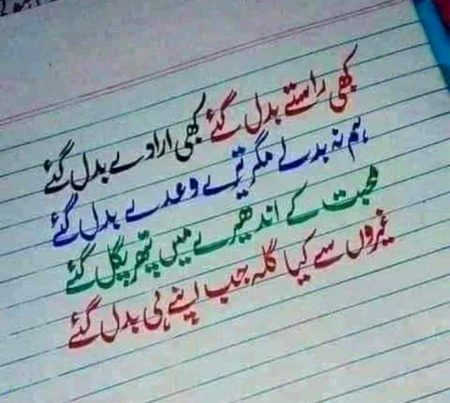 کبھی راستے بدل گئے کبھی ارادے بدل گئے
ہم نہ بدلے مگر تیرے وعدے بدل گئے
محبت کے اندھیرے میں پتھر پگل گئے
غیروں سے کیا گلہ جب اپنے ہی بدل گئے